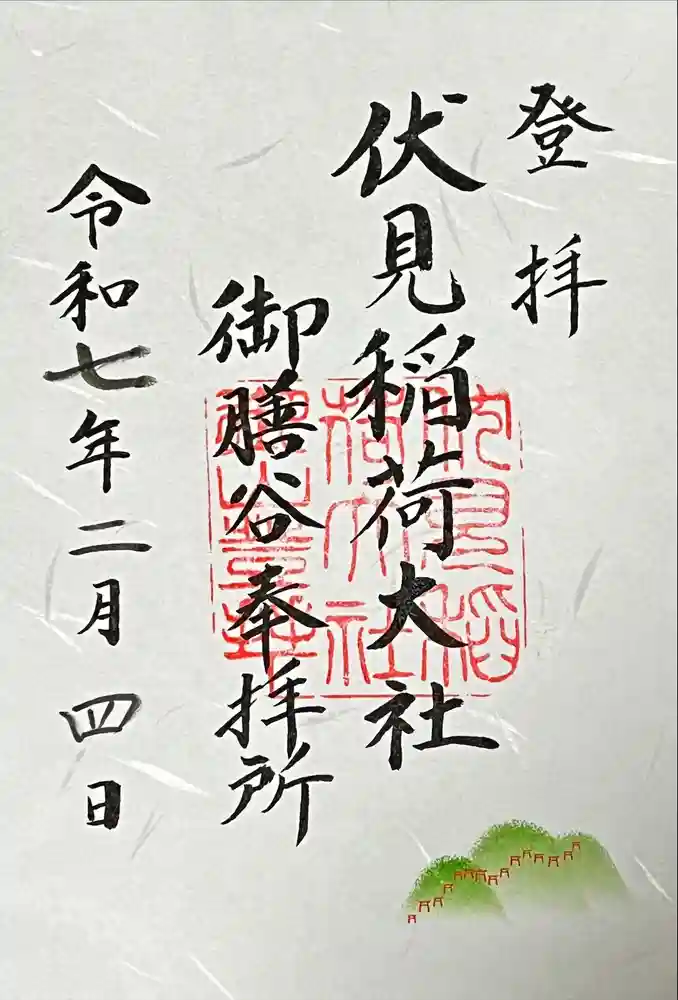 登拝
伏見稲荷大社
御膳谷奉拝所
令和七年二月四日